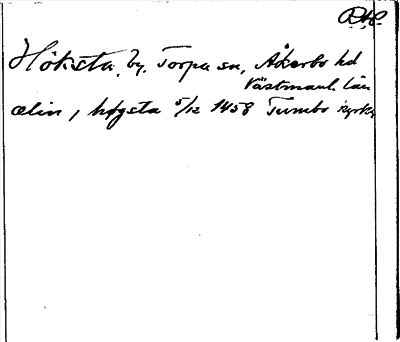 RAP.
Höksta, by, Torpa sn, Åkerbo hd
Västmanl. län
ælin, i høgsta 5/12 1458 Tumbo kyrka